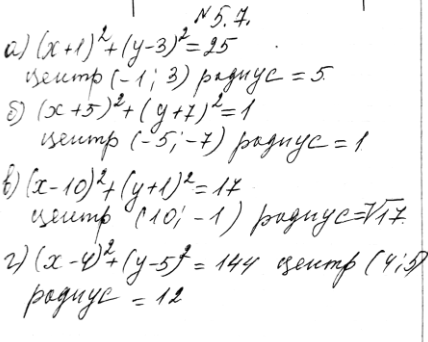 № 5.7.
а) (x+1)²+(y-3)²=25
центр (-1; 3) радиус = 5.
б) (x+5)²+(y+7)²=1
центр (-5; -7) радиус = 1
в) (x-10)²+(y+1)²=17
центр (10; -1) радиус=√17.
г) (x-4)²+(y-5)²=144 центр (4;5)
радиус = 12